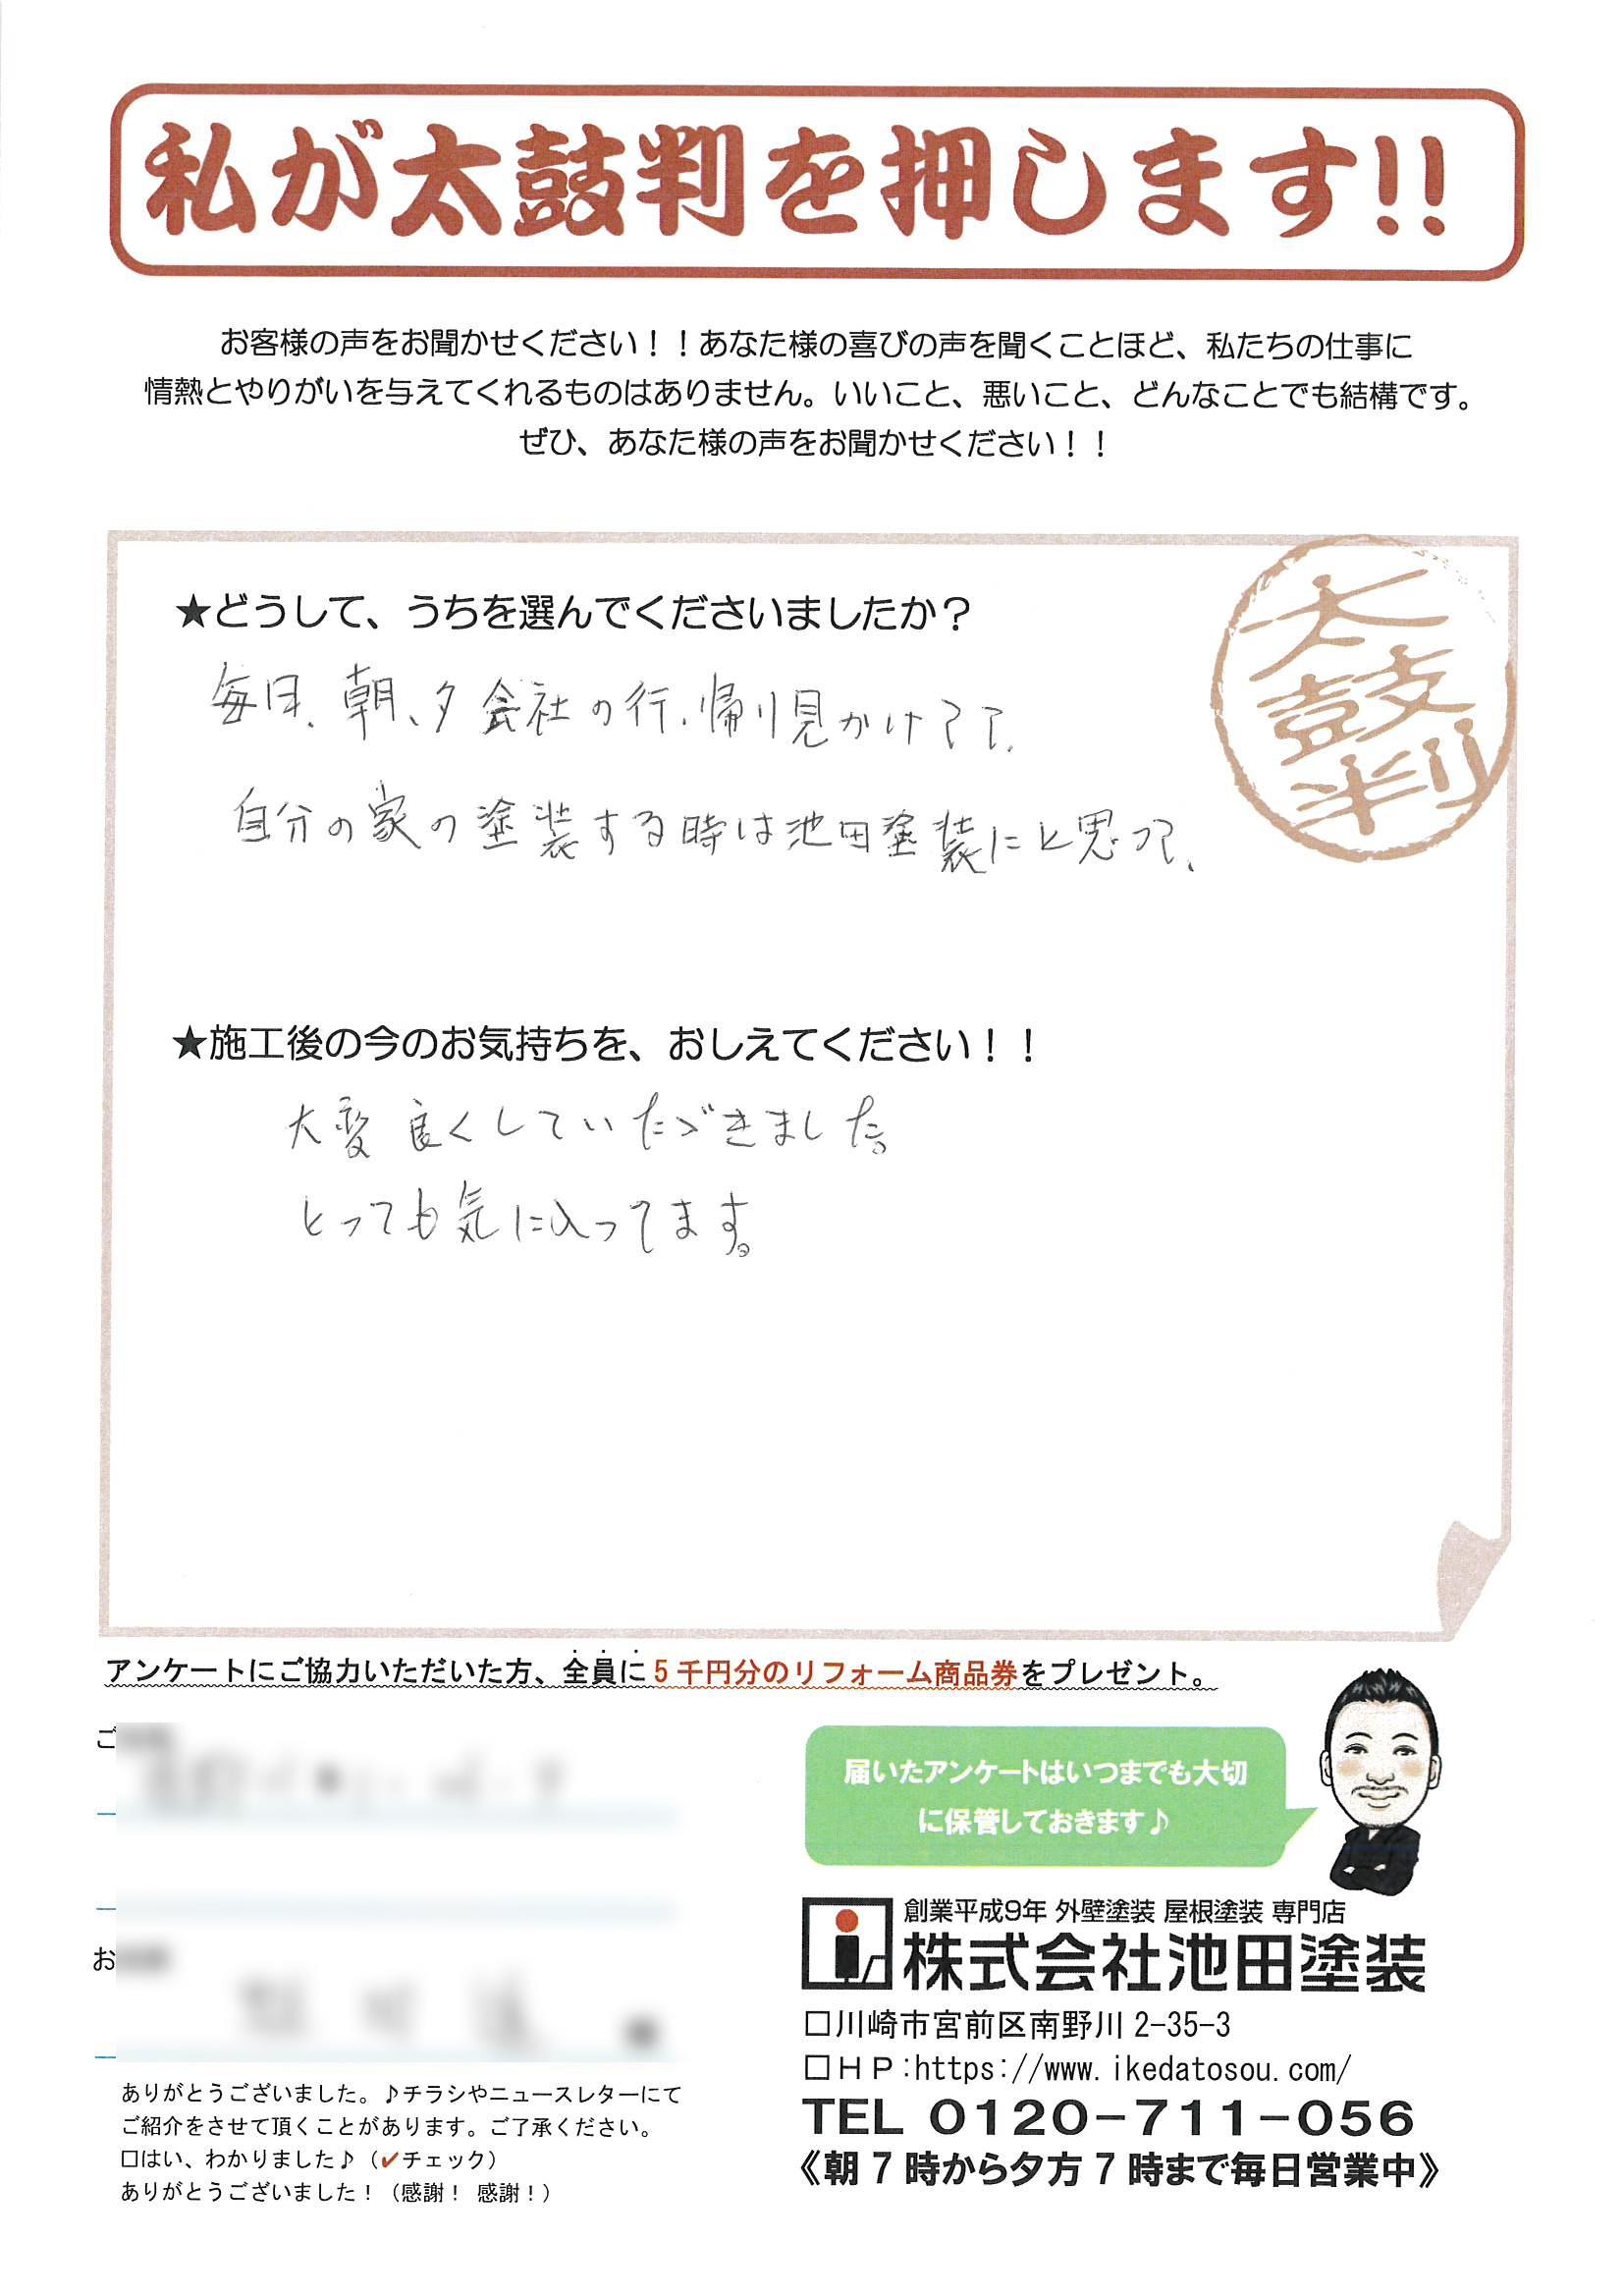 私が太鼓判を押します!!
お客様の声をお聞かせください！！あなた様の喜びの声を聞くことほど、私たちの仕事に
情熱とやりがいを与えてくれるものはありません。いいこと、悪いこと、どんなことでも結構です。
ぜひ、あなた様の声をお聞かせください！！
太鼓判
★どうして、うちを選んでくださいましたか？
毎日、朝、夕会社の行、帰り見かけてて、
自分の家の塗装する時は池田塗装にと思って、
★施工後の今のお気持ちを、おしえてください！！
大変良くしていただきました。
とっても気に入ってます。
アンケートにご協力いただいた方、全員に5千円分のリフォーム商品券をプレゼント。
ご
お
ありがとうございました。♪チラシやニュースレターにて
ご紹介をさせて頂くことがあります。ご了承ください。
□はい、わかりました♪（✓チェック）
ありがとうございました！（感謝！ 感謝！）
届いたアンケートはいつまでも大切
に保管しておきます♪
創業平成9年 外壁塗装 屋根塗装 専門店
株式会社池田塗装
□川崎市宮前区南野川2-35-3
□ＨＰ:https://www.ikedatosou.com/
TEL 0120-711-056
《朝7時から夕方7時まで毎日営業中》